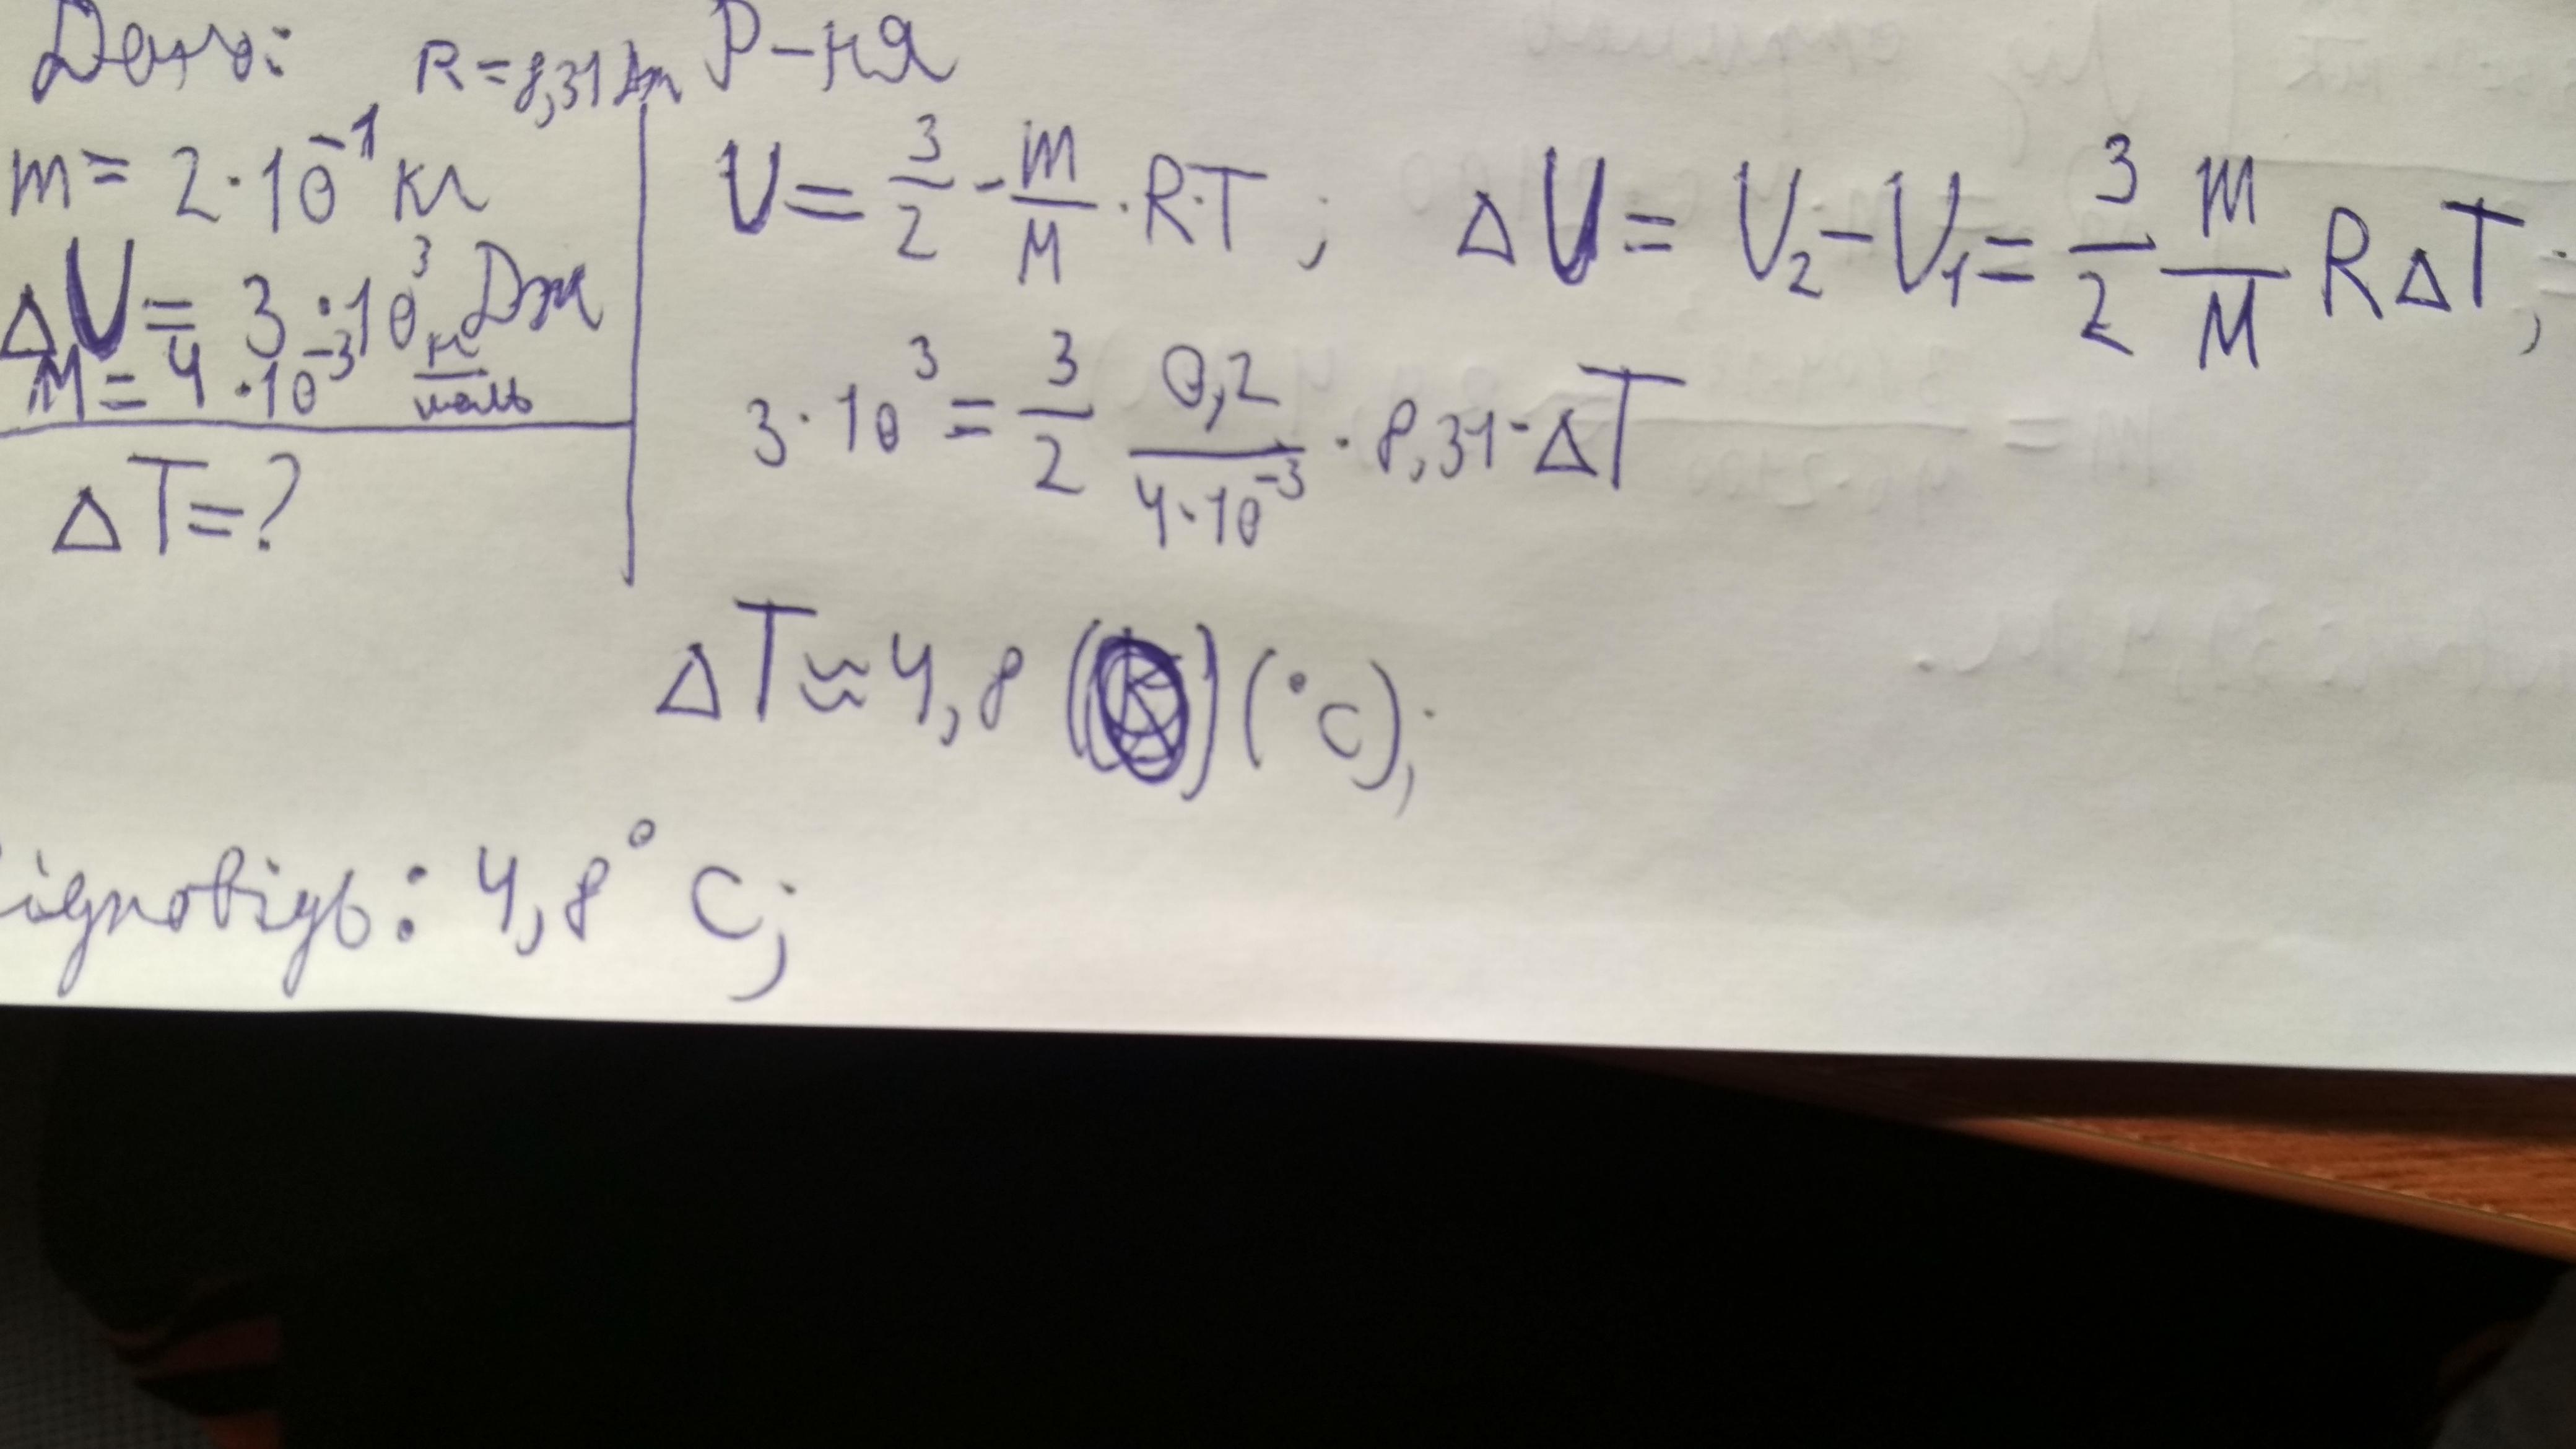 Дано: R = 8,31 Дж Р-ня
m = 2·10⁻¹ кг
ΔU = 3·10³ Дж
M = 4·10⁻³ кг/моль
ΔT = ?
U = 3/2 - m/M · R·T ; ΔU = U₂ - U₁ = 3/2 m/M R ΔT ;
3·10³ = 3/2 0,2/4·10⁻³ · 8,31 · ΔT
ΔT ≈ 4,8 (°C);
ідповідь: 4,8° C;